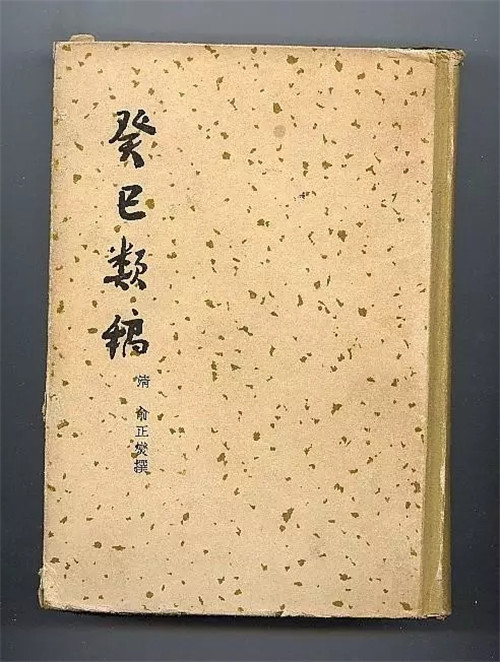 癸巳類稿
清 俞正燮撰